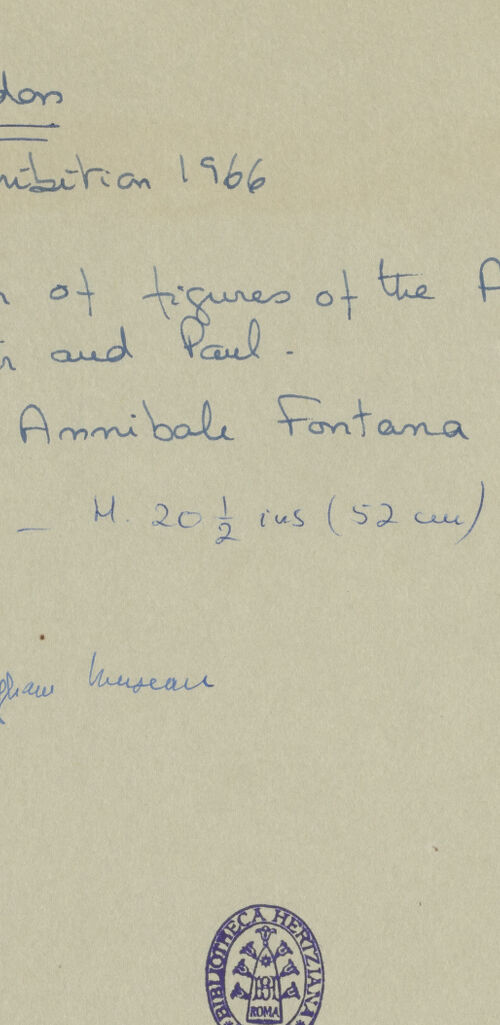 don
hibition 1966
of figures of the A
and Paul.
Annibale Fontana
– H. 20 ½ ins (52 cm)
gham Museum
BIBLIOTHECA HERTZIANA
ROMA